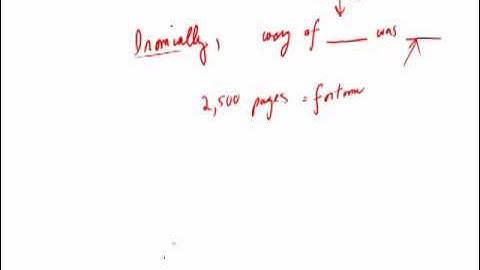 Ironically, way of ____ was ____
2,500 pages = fortune